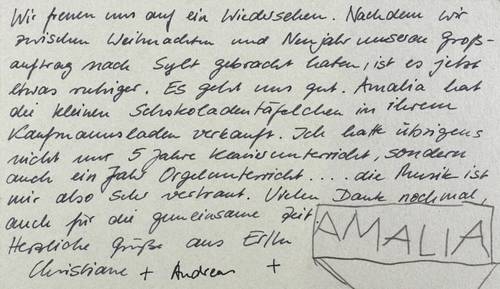 Wir freuen uns auf ein Wiedersehen. Nachdem wir
zwischen Weihnachten und Neujahr unseren Groß-
auftrag nach Sylt gebracht haben, ist es jetzt
etwas ruhiger. Es geht uns gut. Amalia hat
die kleinen Schokoladentäfelchen in ihrem
Kaufmannsladen verkauft. Ich hatte übrigens
nicht nur 5 Jahre Klavierunterricht, sondern
auch ein Jahr Orgelunterricht.... die Musik ist
mir also sehr vertraut. Vielen Dank nochmal,
auch für die gemeinsame Zeit.
Herzliche Grüße aus
Christiane + Andreas +
AMALIA